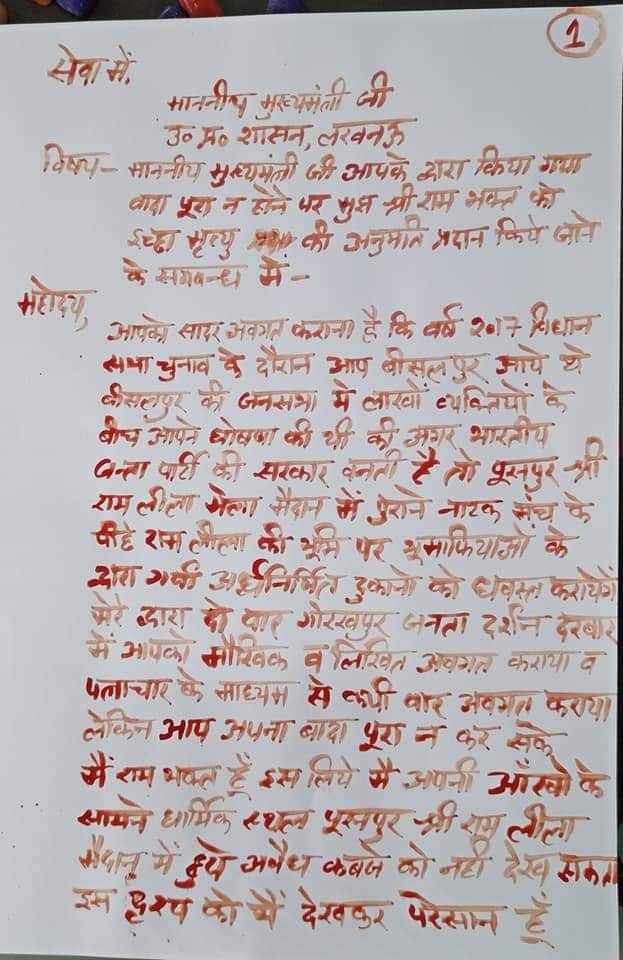 1
सेवा में,
माननीय मुख्यमंत्री जी
उ० प्र० शासन, लखनऊ
विषय- माननीय मुख्यमंत्री जी आपके द्वारा किया गया
वादा पूरा न होने पर मुझ श्री राम भक्त को
इच्छा मृत्यु की अनुमति प्रदान किये जाने
के सम्बन्ध में -
महोदय,
आपको सादर अवगत कराना है कि वर्ष 2017 विधान
सभा चुनाव के दौरान आप बीसलपुर आये थे
बीसलपुर की जनसभा में लाखों व्यक्तियों के
बीच आपने घोषणा की थी की अगर भारतीय
जन्ता पार्टी की सरकार बनती है तो श्री
राम लीला मेला मैदान में पुराने नाटक मंच के
पीछे राम लीला की भूमि पर भूमाफियाओ के
द्वारा गयी अर्धनिर्मित दुकानो को धवस्त करायेगें
मेरे द्वारा दो वार गोरखपुर जनता दर्शन दरबार
में आपको मौखिक व लिखित अवगत कराया व
पत्राचार के माध्यम से कयी वार अवगत कराया
लेकिन आप अपना वादा पूरा न कर सके
मैं राम भक्त हूँ इस लिये मै अपनी आँखो के
सामने धार्मिक स्थल श्री राम लीला
मैदान में हुये अवैध कबजे को नही देख सकता
इस दृश्य को मैं देखकर परेसान हूँ